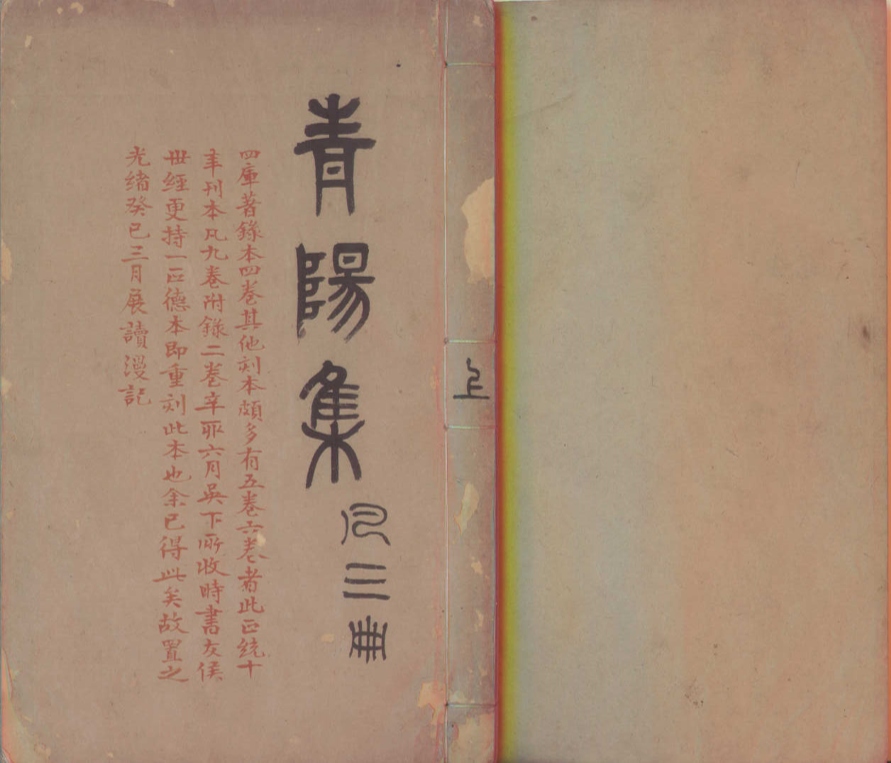 青陽集
凡三冊
四庫著錄本四卷其他刻本頗多有五卷六卷者此正統十
年刊本凡九卷附錄二卷辛卯六月吳下所收時書友侯
世經更持一正德本即重刻此本也余已得此矣故置之
光緒癸巳三月展讀漫記
上